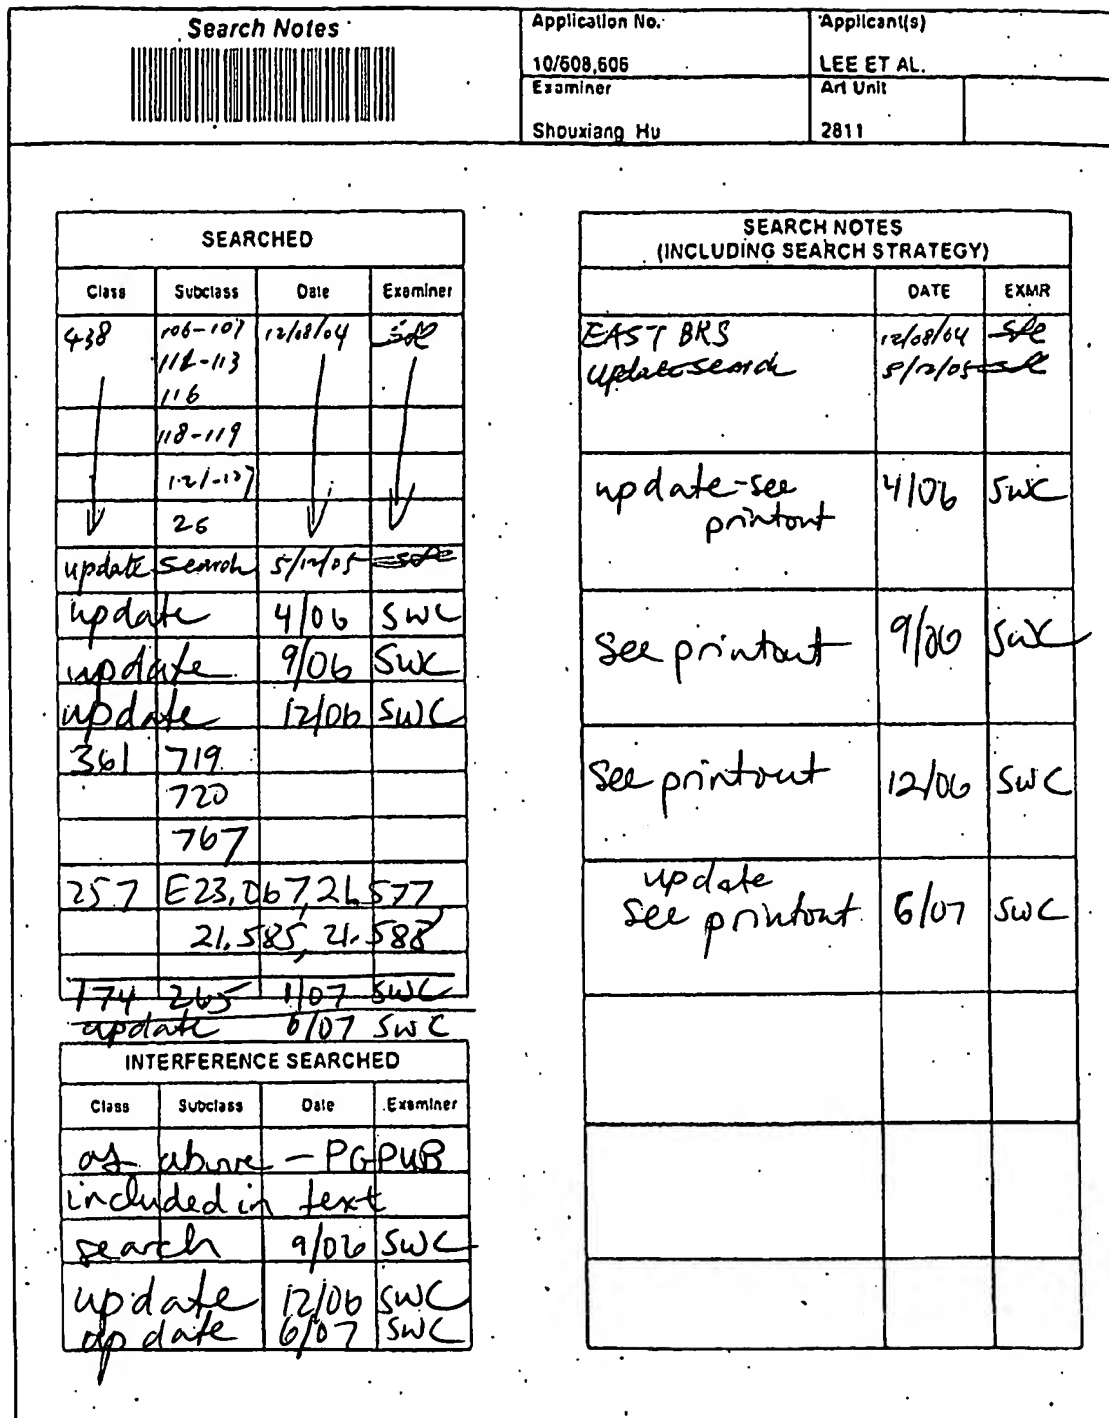 Search Notes
Application No.
Applicant(s)
10/608,606
LEE ET AL.
Examiner
Art Unit
Shouxiang Hu
2811
SEARCHED
Class Subclass Date Examiner
438 106-107 12/08/04
112-113
116
118-119
121-127
26
update search 5/12/05
update 4/06 SWC
update 9/06 SWC
update 12/06 SWC
361 719
720
767
257 E23.067, 21.577
21.585, 21.588
174 265 1/07 SWC
update 6/07 SWC
INTERFERENCE SEARCHED
Class Subclass Date Examiner
as above - PGPUB
included in text
search 9/06 SWC
update 12/06 SWC
update 6/07 SWC
SEARCH NOTES
(INCLUDING SEARCH STRATEGY)
DATE EXMR
EAST BRS 12/08/04
update search 5/12/05
update-see 4/06 SWC
printout
see printout 9/06 SWC
see printout 12/06 SWC
update
see printout 6/07 SWC